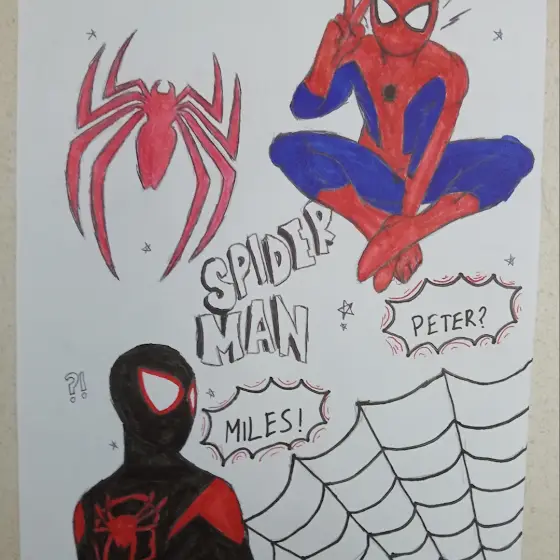 SPIDER
MAN
PETER?
?!
MILES!